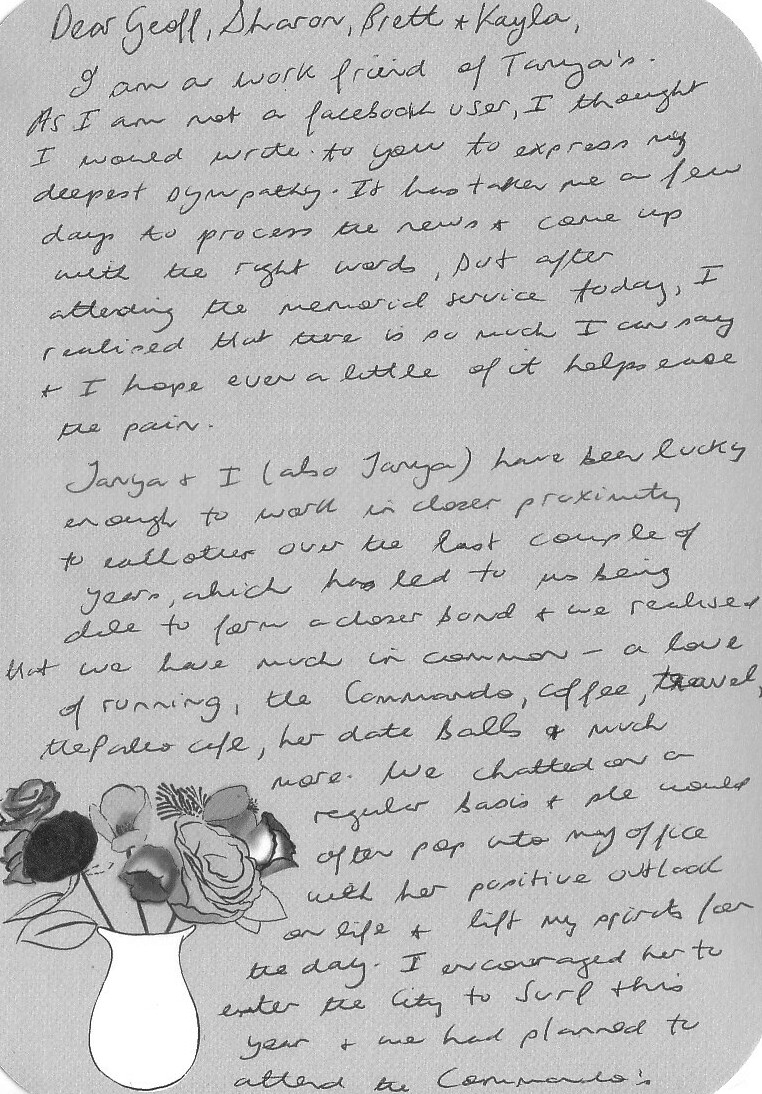 Dear Geoff, Sharon, Brett + Kayla,
I am a work friend of Tanya's.
As I am not a facebook user, I thought
I would write to you to express my
deepest sympathy. It has taken me a few
days to process the news + come up
with the right words, but after
attending the memorial service today, I
realised that there is so much I can say
+ I hope even a little of it helps ease
the pain.
Tanya + I (also Tanya) have been lucky
enough to work in closer proximity
to each other over the last couple of
years, which has led to us being
able to form a closer bond + we realised
that we have much in common – a love
of running, the Commando, coffee, travel,
the Paleo cafe, her date balls & much
more. We chatted on a
regular basis + she would
often pop into my office
with her positive outlook
on life + lift my spirits for
the day. I encouraged her to
enter the City to Surf this
year + we had planned to
attend the Commando's